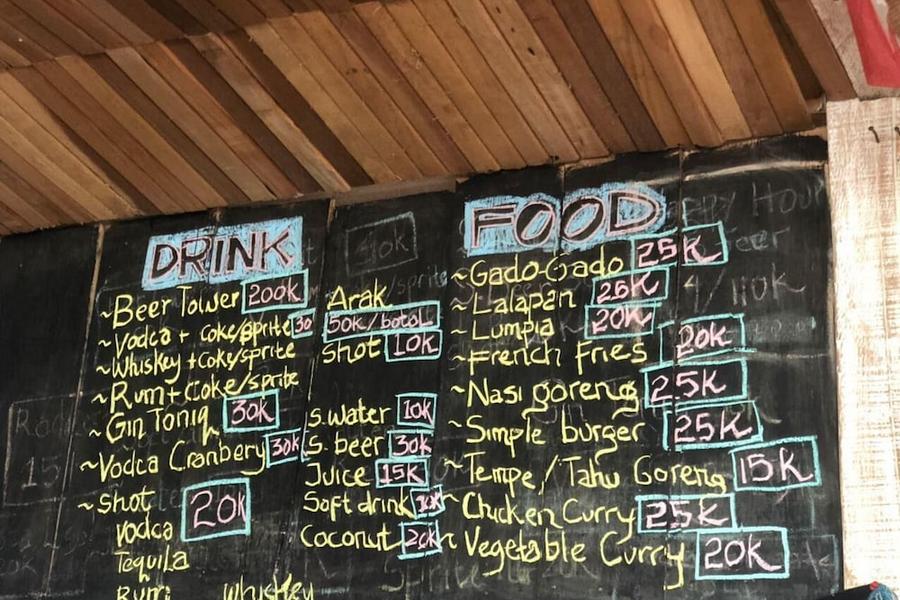 DRINK
~Beer Tower 200K
~Vodca + coke/sprite 30
~Whiskey +coke/sprite
~Rum+coke/sprite
~Gin Toniq 30K
~Vodca Cranbery 30K
~shot 20K
vodca
Tequila
Rum whiskey
Arak
50K/botol
shot 10K
S.water 10K
S. beer 30K
Juice 15K
Soft drink 10K
Coconut 20K
FOOD
~Gado-Gado 25K
~Lalapan 25K
~Lumpia 20K
~French fries 20K
~Nasi goreng 25K
~Simple burger 25K
~Tempe/Tahu Goreng 15K
~Chicken Curry 25K
~Vegetable Curry 20K